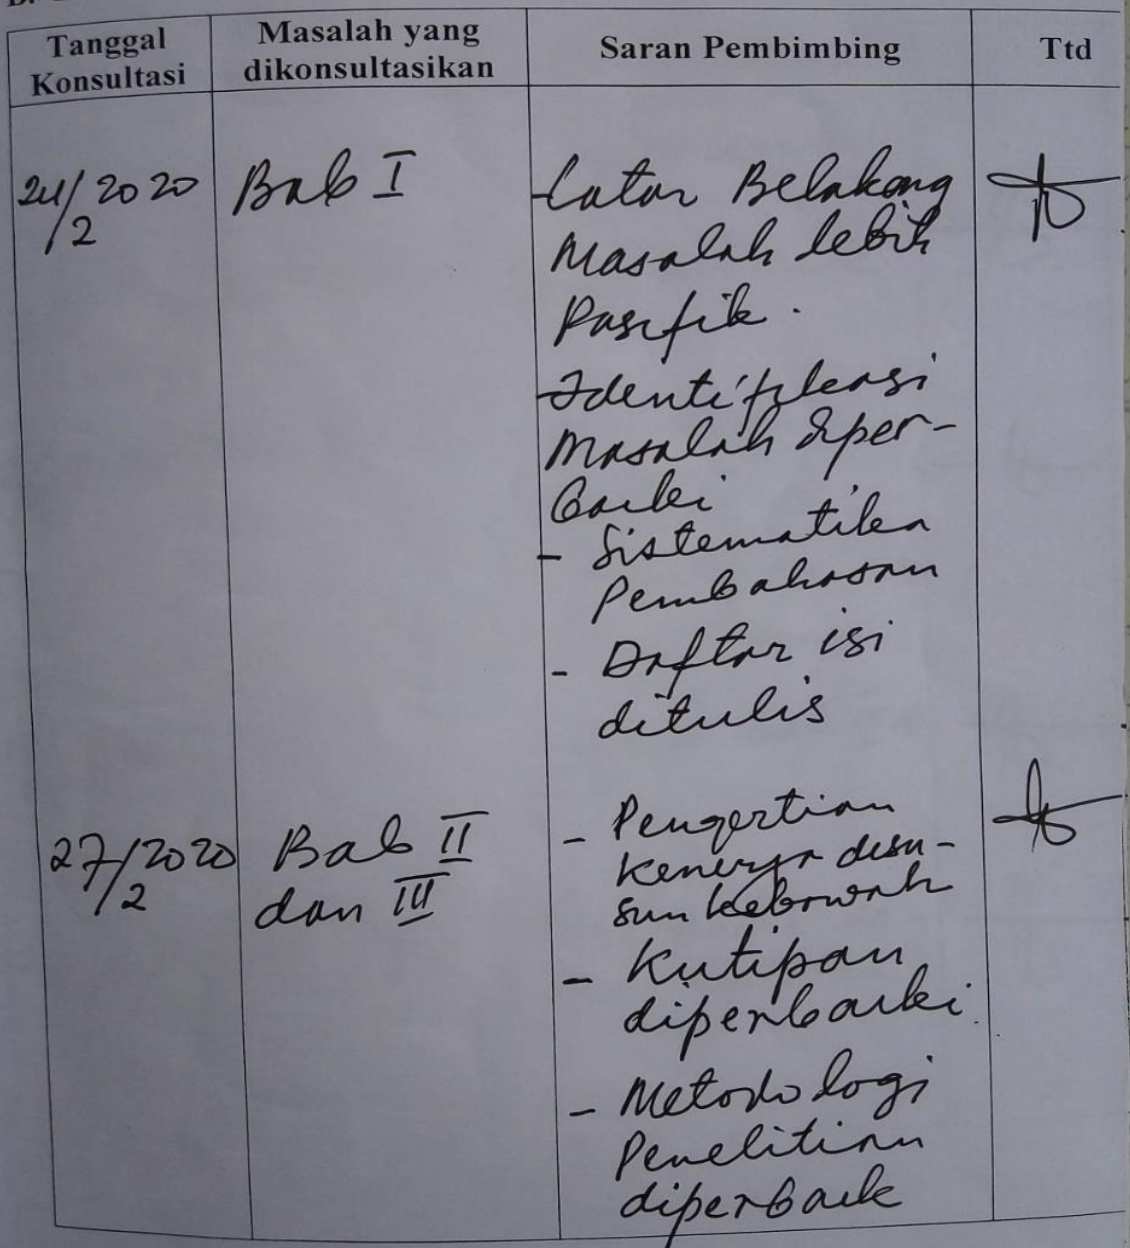 Tanggal Konsultasi
Masalah yang dikonsultasikan
Saran Pembimbing
Ttd
24/2 2020
Bab I
- Latar Belakang
Masalah lebih
Pasifik.
- Identifikasi
Masalah diper-
baiki
- Sistematika
Pembahasan
- Daftar isi
ditulis
27/2 2020
Bab II
dan III
- Pengertian
kenerja disu-
sun kebawah
- Kutipan
diperbaiki.
- Metodologi
Penelitian
diperbaik